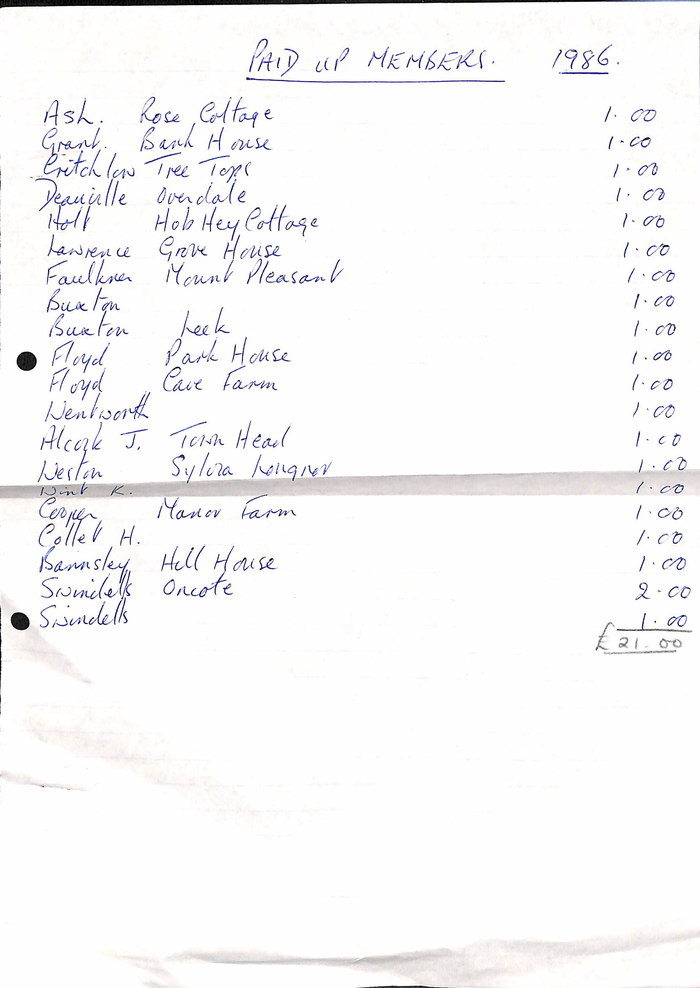 PAID UP MEMBERS. 1986.
Ash. Rose Cottage 1.00
Grant. Bank House 1.00
Critchlow Tree Tops 1.00
Deauville Overdale 1.00
Holt Hob Hey Cottage 1.00
Lawrence Grove House 1.00
Faulkner Mount Pleasant 1.00
Buxton 1.00
Buxton Leek 1.00
Floyd Park House 1.00
Floyd Cave Farm 1.00
Wentworth 1.00
Alcock J. Town Head 1.00
Weston Sylvia Longnor 1.00
K. 1.00
Cooper Manor Farm 1.00
Collet H. 1.00
Bannsley Hill House 1.00
Swindells Oncote 2.00
Swindells 1.00
£21.00